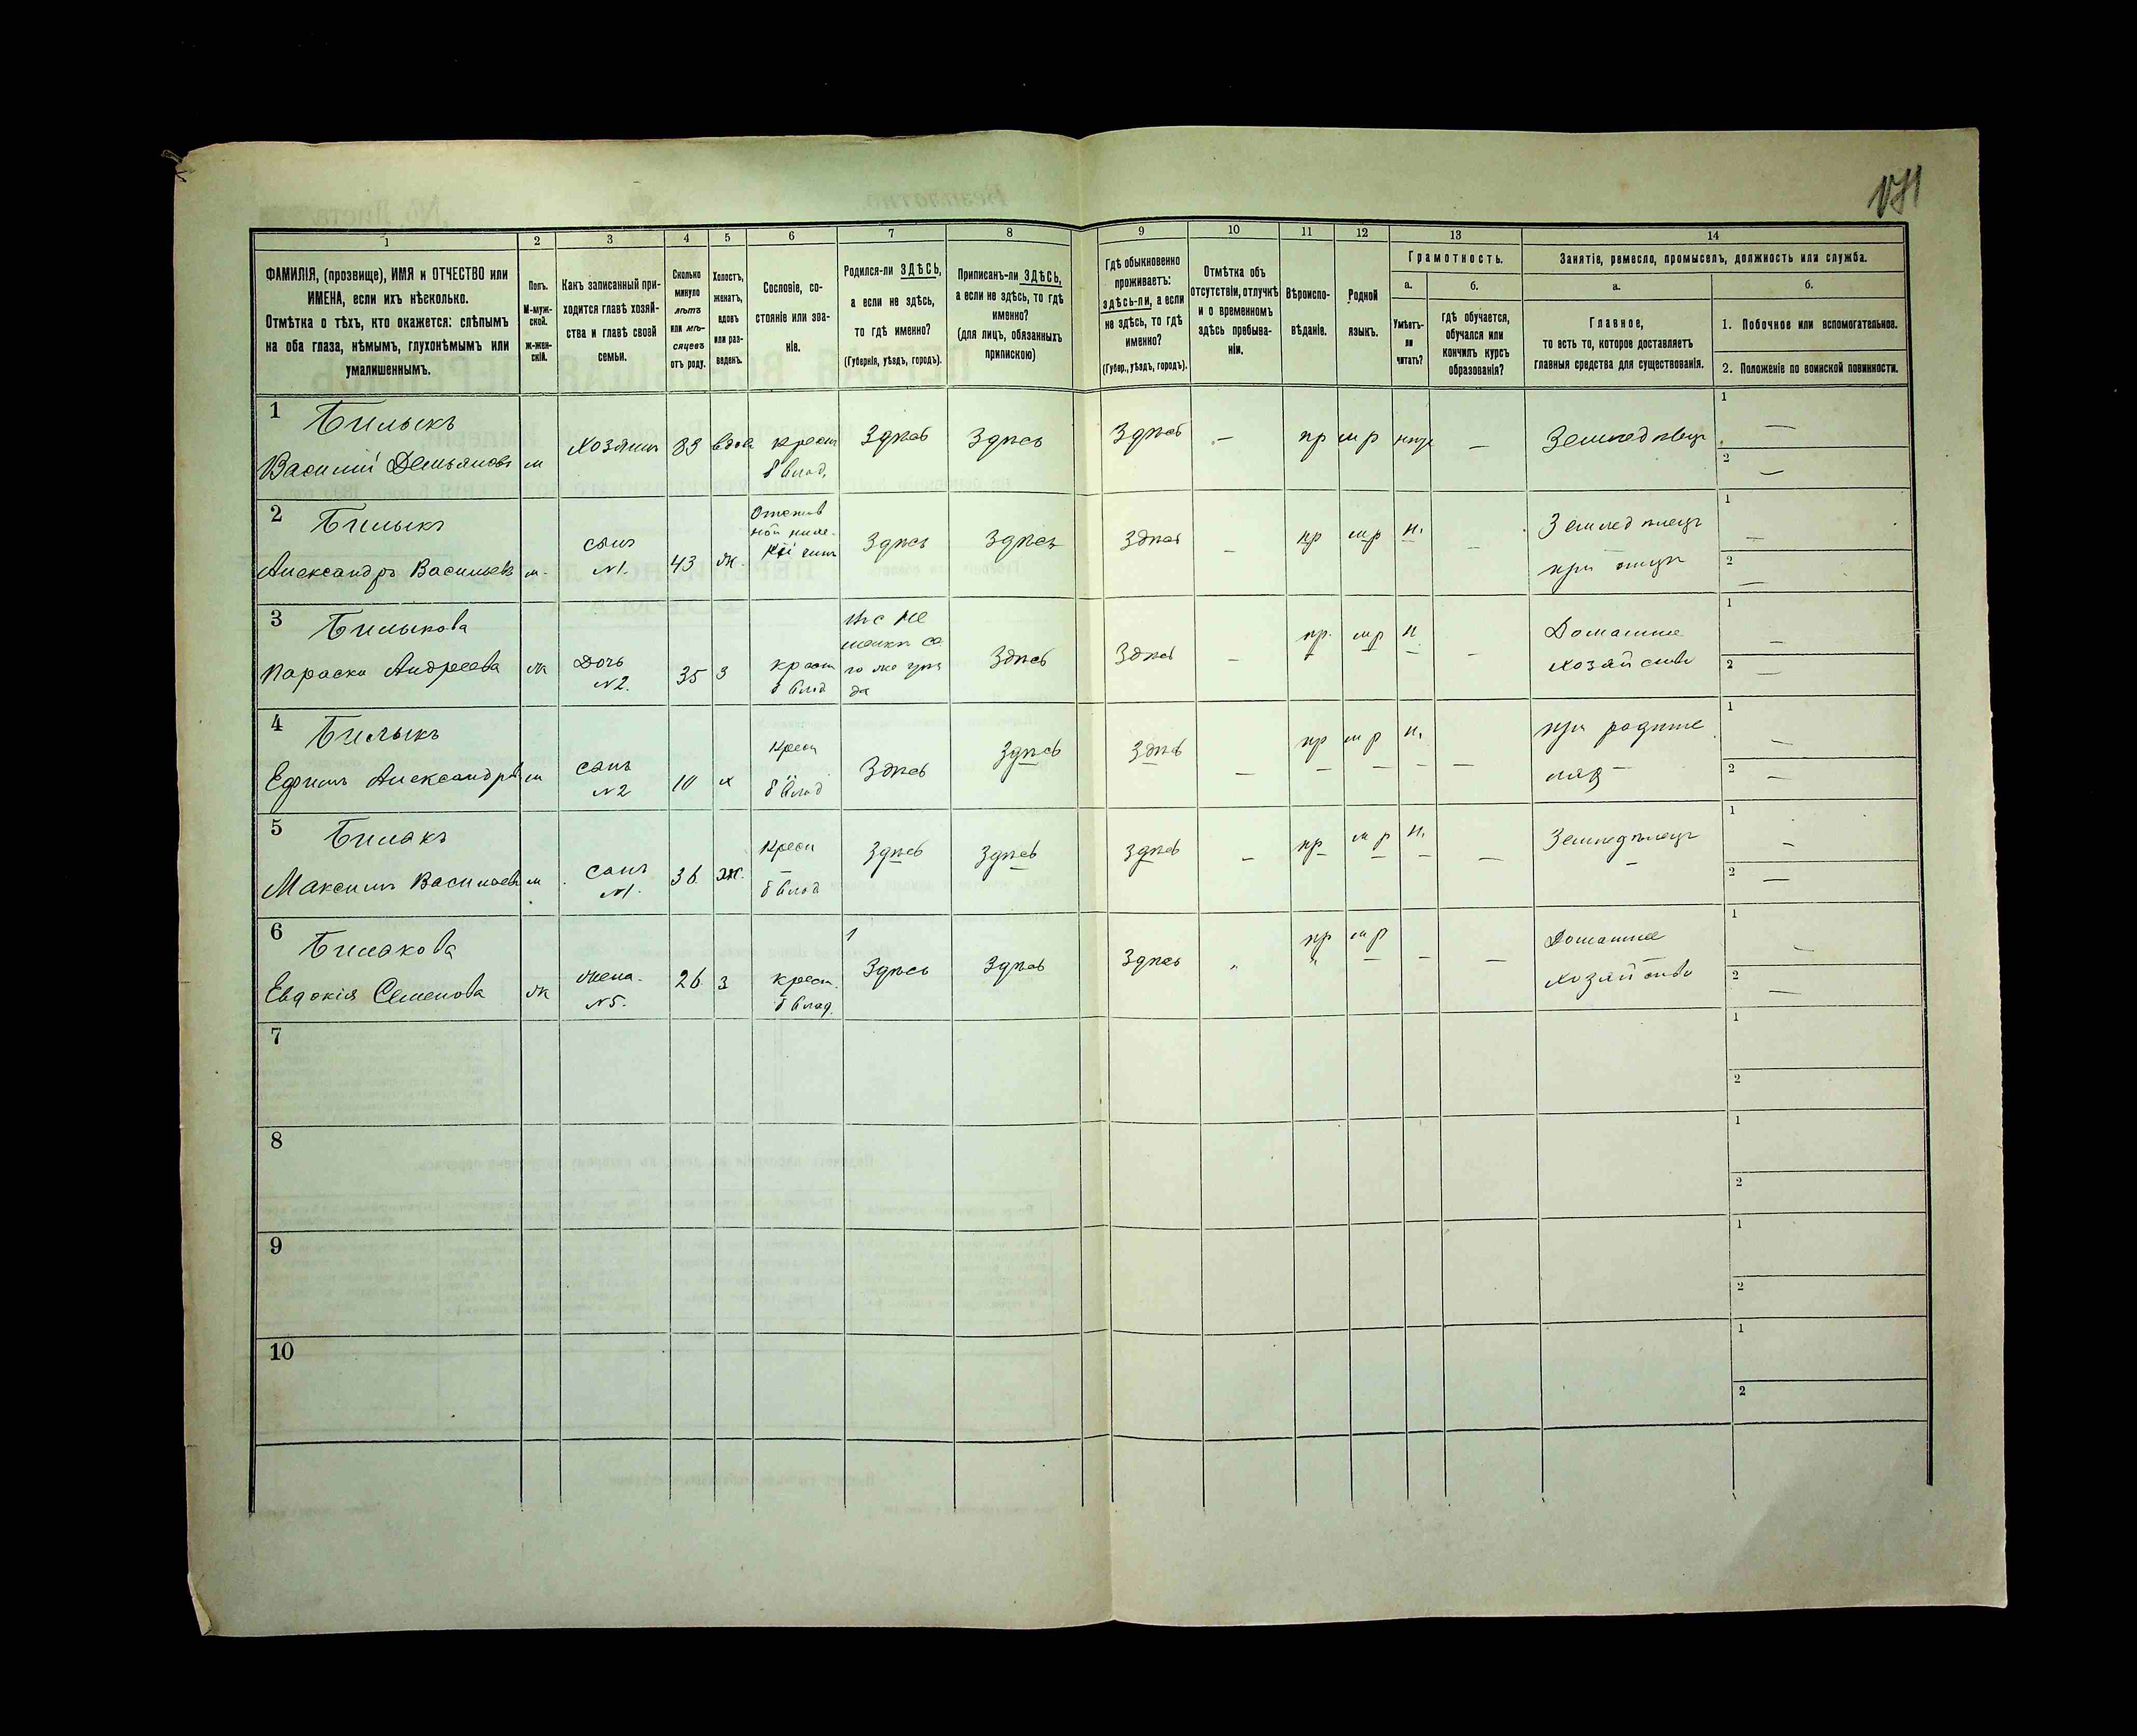 1
2
3
4
5
6
7
8
9
10
11
12
13
14
ФАМИЛІЯ, (прозвище), ИМЯ и ОТЧЕСТВО или
ИМЕНА, если ихъ нѣсколько.
Отмѣтка о тѣхъ, кто окажется: слѣпымъ
на оба глаза, нѣмымъ, глухонѣмымъ или
умалишеннымъ.
Полъ.
М-муж-
ской.
Ж-жен-
скій.
Какъ записанный при-
ходится главѣ хозяй-
ства и главѣ своей
семьи.
Сколько
минуло
лѣтъ
или мѣ-
сяцевъ
отъ роду.
Холостъ,
женатъ,
вдовъ
или раз-
веденъ.
Сословіе, со-
стояніе или зва-
ніе.
Родился-ли ЗДѢСЬ,
а если не здѣсь,
то гдѣ именно?
(Губернія, уѣздъ, городъ).
Приписанъ-ли ЗДѢСЬ,
а если не здѣсь, то гдѣ
именно?
(для лицъ, обязанныхъ
припискою)
Гдѣ обыкновенно
проживаетъ:
здѣсь-ли, а если
не здѣсь, то гдѣ
именно?
(Губер., уѣздъ, городъ).
Отмѣтка объ
отсутствіи, отлучкѣ
и о временномъ
здѣсь пребыва-
ніи.
Вѣроиспо-
вѣданіе.
Родной
языкъ.
Грамотность.
а.
Умѣетъ-
ли
читать?
б.
гдѣ обучается,
обучался или
кончилъ курсъ
образованія?
Занятіе, ремесло, промыселъ, должность или служба.
а.
Главное,
то есть то, которое доставляетъ
главныя средства для существованія.
б.
1. Побочное или вспомогательное.
2. Положеніе по воинской повинности.
1 Билыкъ
Василій Демьяновъ м Хозяинъ вдов крест б влад. Здѣсь Здѣсь Здѣсь — пр мр — Земледѣлецъ
1 —
2 —
2 Билыкъ
Александръ Васильевъ м. сынъ N1. 43 ж. Здѣсь Здѣсь Здѣсь — пр мр н. — Земледѣлецъ
при отцѣ
1 —
2 —
3 Билыкова
Параска Андреева ж Дочь N2. 35 з крест б влад Здѣсь Здѣсь — пр. мр н — Домашнее
хозяйство
1 —
2 —
4 Билыкъ
Ефимъ Александровъ м сынъ N2 10 х Крест б влад Здѣсь Здѣсь Здѣсь — пр мр н. — при родите
ляхъ
1 —
2 —
5 Билакъ
Максимъ Васильевъ м сынъ N1. 36 ж. Крест б влад Здѣсь Здѣсь Здѣсь — пр мр н. — Земледѣлецъ
1 —
2 —
6 Билакова
Евдокія Семенова ж жена. N5. 26 з крест. б влад. Здѣсь Здѣсь Здѣсь „ пр мр — — Домашнее
хозяйство
1 —
2 —
7
1
2
8
1
2
9
1
2
10
1
2